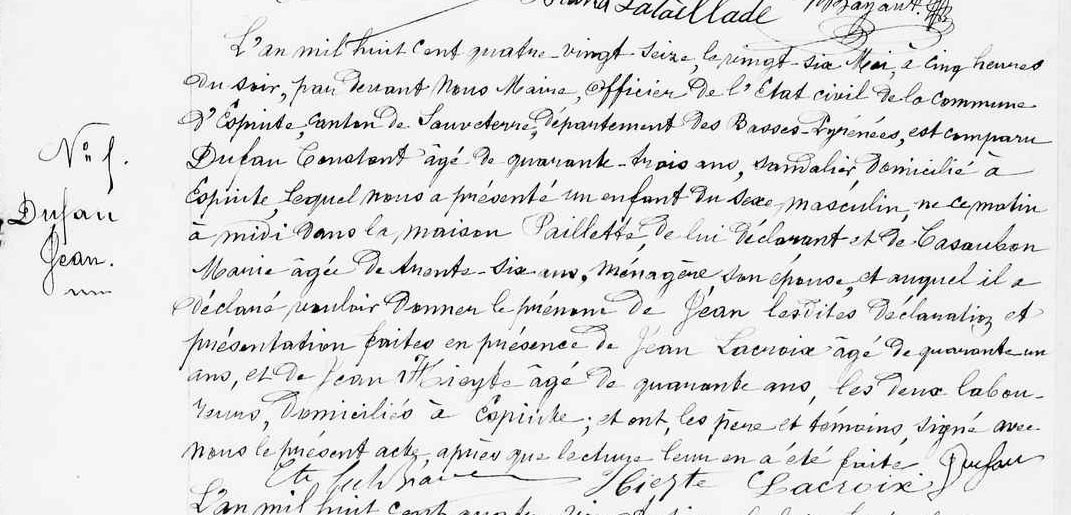 Lataillade
L'an mil huit cent quatre-vingt-seize, le vingt-six Mai, à cinq heures
du soir, par devant Nous Maire, Officier de l'Etat civil de la commune
d'Espiute, canton de Sauveterre, département des Basses-Pyrénées, est comparu
Dufau Constant âgé de quarante-trois ans, sandalier, domicilié à
Espiute, lequel nous a présenté un enfant du sexe masculin, né ce matin
à midi dans la maison Paillette, de lui déclarant et de Casaubon
Marie âgée de trente-six ans, ménagère son épouse, et auquel il a
déclaré vouloir donner le prénom de Jéan lesdites déclaration et
présentation faites en présence de Jéan Lacroix âgé de quarante un
ans, et de Jean Hieyte âgé de quarante ans, les deux labou-
reurs, domiciliés à Espiute; et ont, les père et témoins, signé avec
nous le présent acte, après que lecture leur en a été faite. Dufau
Hieyte Lacroix
L'an mil huit cent quatre
Nº 5.
Dufau
Jéan.